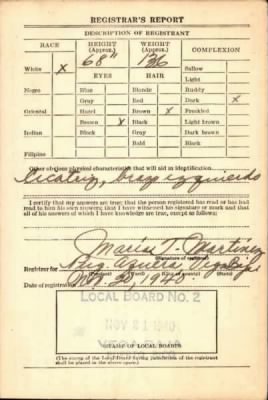 REGISTRAR'S REPORT
DESCRIPTION OF REGISTRANT
RACE HEIGHT (Approx.) WEIGHT (Approx.) COMPLEXION
68" 136
White X Sallow
EYES HAIR Light
Negro Blue Blonde Ruddy
Gray Red Dark X
Oriental Hazel Brown X Freckled
Brown X Black Light brown
Indian Black Gray Dark brown
Bald Black
Filipino
Other obvious physical characteristics that will aid in identification
Cicatriz, brazo izquierdo
I certify that my answers are true; that the person registered has read or has had
read to him his own answers; that I have witnessed his signature or mark and that
all of his answers of which I have knowledge are true, except as follows:
Maria T. Martinez
(Signature of registrar)
Registrar for Vega Baja
Date of registration Nov. 20, 1940
LOCAL BOARD No. 2
NOV 21 1940
VEGA BAJA
(STAMP OF LOCAL BOARD)
(The stamp of the Local Board having jurisdiction of the registrant
shall be placed in the above space.)